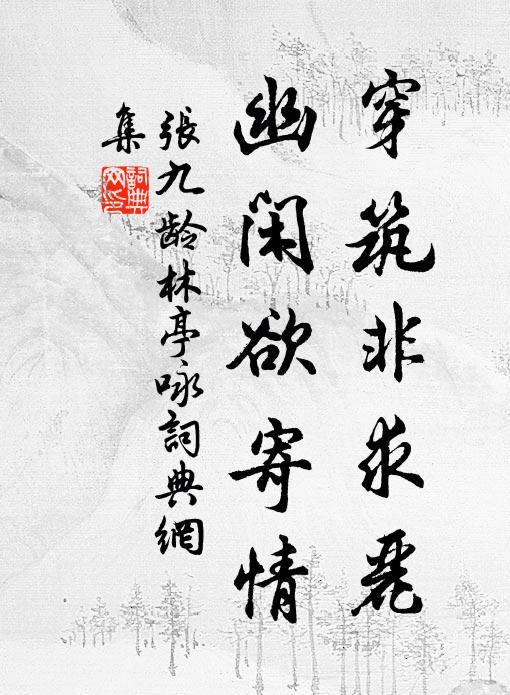 穿筑非求丽
幽闲欲寄情
張九龄林亭咏詞典網
集
詞典網印